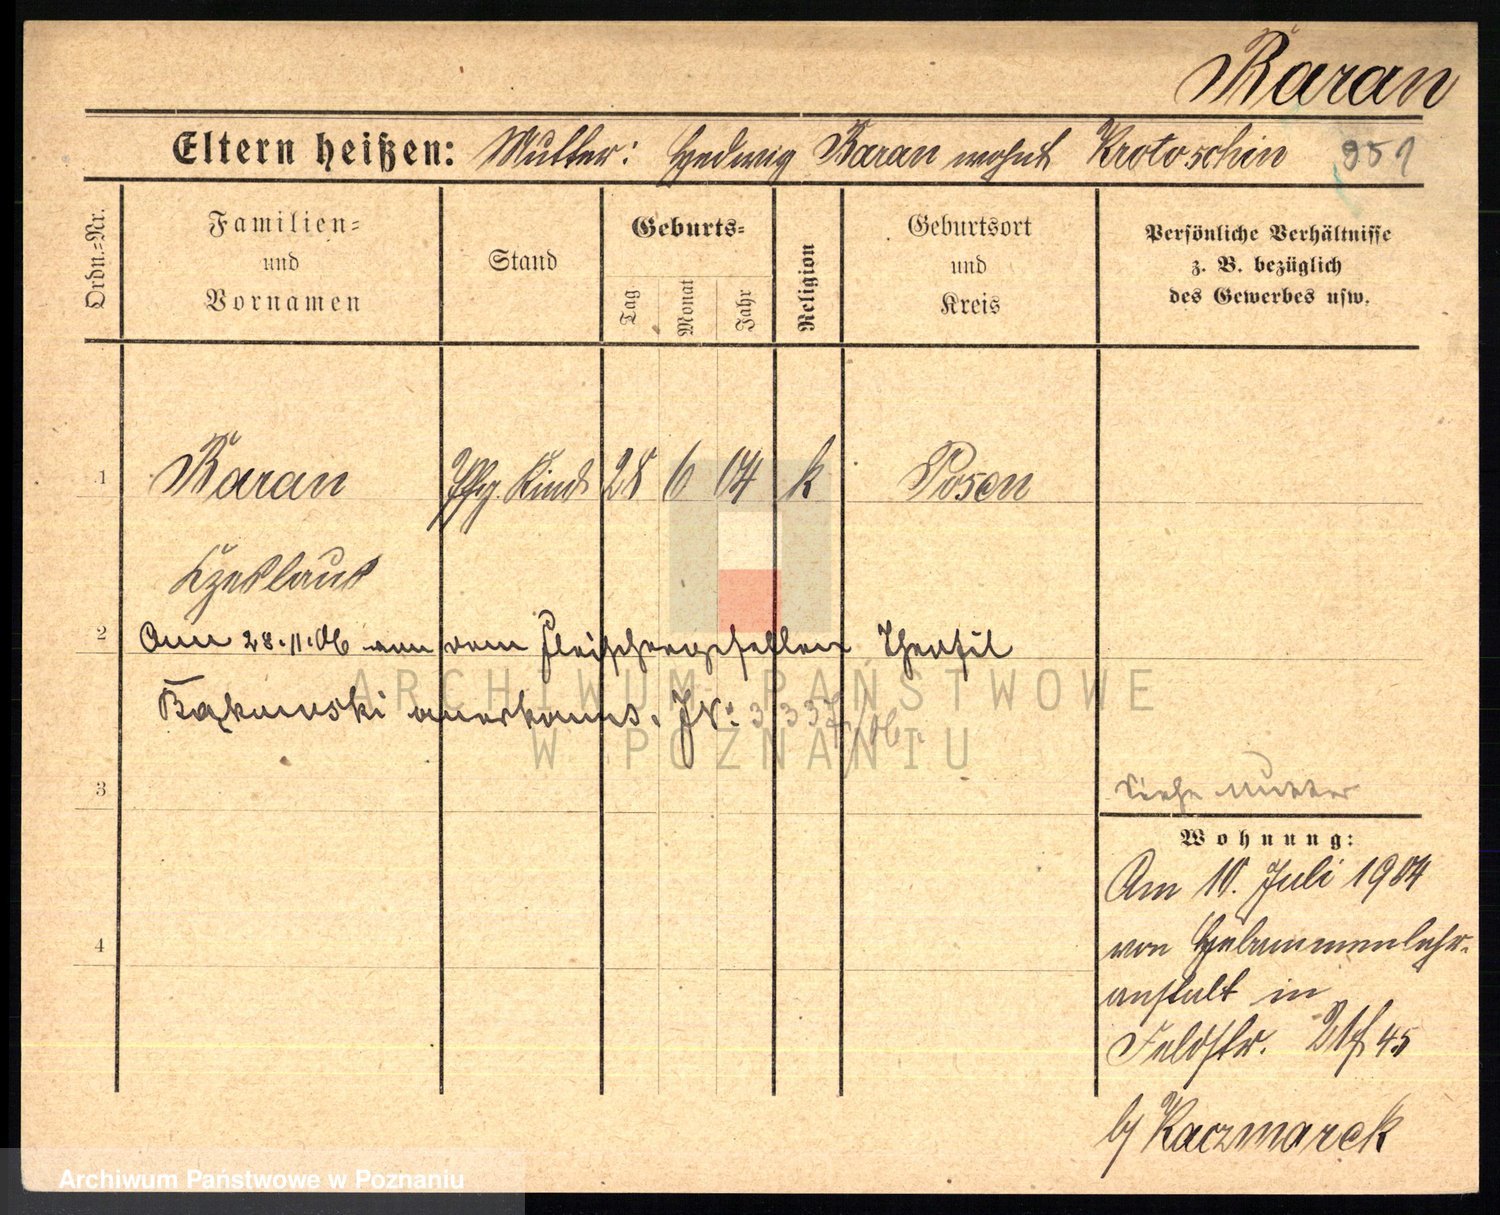 Baran
Eltern heißen: Mutter: Hedwig Baran wohnt Krotoschin 951
Ordn.=Nr.
Familien=
und
Vornamen
Stand
Geburts=
Tag
Monat
Jahr
Religion
Geburtsort
und
Kreis
Persönliche Verhältnisse
z. B. bezüglich
des Gewerbes usw.
1 Baran Pflg. Kind 28 6 04 k Posen
Czeslaus
2 Am 28.11.06 vom Fleischergesellen Theofil
Bąkowski anerkannt. JN: 3337/06.
3 Siehe Mutter
Wohnung:
Am 10. Juli 1904
von Hebammenlehr-
anstalt in
4
Feldstr. 45
b/ Kaczmarek
ARCHIWUM PAŃSTWOWE
W POZNANIU
Archiwum Państwowe w Poznaniu